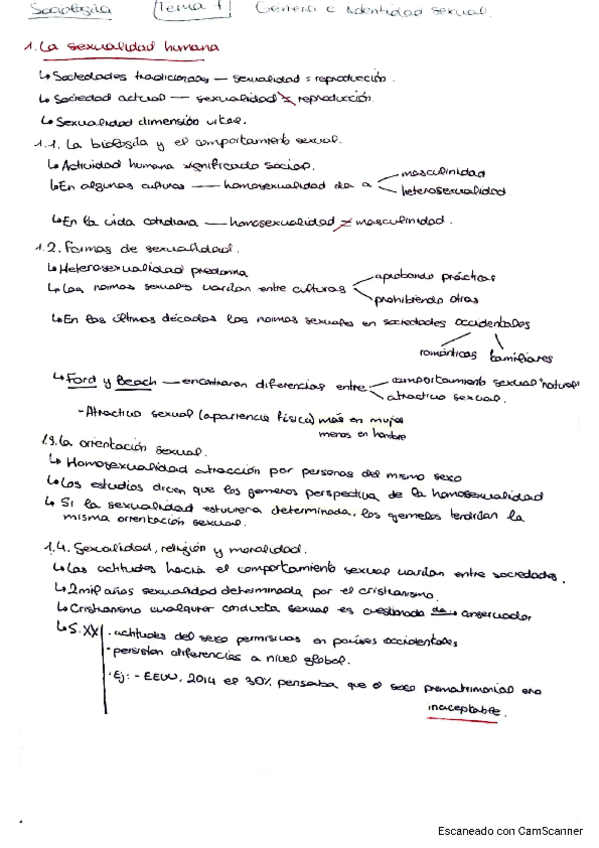 Sociología Tema 7 Género e identidad sexual.
1. La sexualidad humana
↳ Sociedades tradicionales — sexualidad = reproducción.
↳ Sociedad actual — sexualidad ≠ reproducción.
↳ Sexualidad dimensión vital.
1.1. La biología y el comportamiento sexual.
↳ Actividad humana significado social.
↳ En algunas culturas — homosexualidad da a masculinidad
heterosexualidad
↳ En la vida cotidiana — homosexualidad ≠ masculinidad.
1.2. Formas de sexualidad.
↳ Heterosexualidad predomina
↳ Las normas sexuales varían entre culturas aprobando prácticas
prohibiendo otras
↳ En las últimas décadas las normas sexuales en sociedades occidentales
románticas familiares
↳ Ford y Beach — encontraron diferencias entre comportamiento sexual "natural"
atractivo sexual.
- Atractivo sexual (apariencia física) más en mujer
menos en hombre
1.3. La orientación sexual.
↳ Homosexualidad atracción por personas del mismo sexo
↳ Los estudios dicen que los gemelos perspectiva de la homosexualidad
↳ Si la sexualidad estuviera determinada, los gemelos tendrían la
misma orientación sexual.
1.4. Sexualidad, religión y moralidad.
↳ Las actitudes hacia el comportamiento sexual varían entre sociedades.
↳ 2 mil años sexualidad determinada por el cristianismo.
↳ Cristianismo cualquier conducta sexual es cuestionada → conservador
↳ S. XX · actitudes del sexo permisivas en países occidentales
· persisten diferencias a nivel global.
· Ej: - EEUU, 2014 el 30% pensaba que el sexo prematrimonial era
inaceptable.
Escaneado con CamScanner